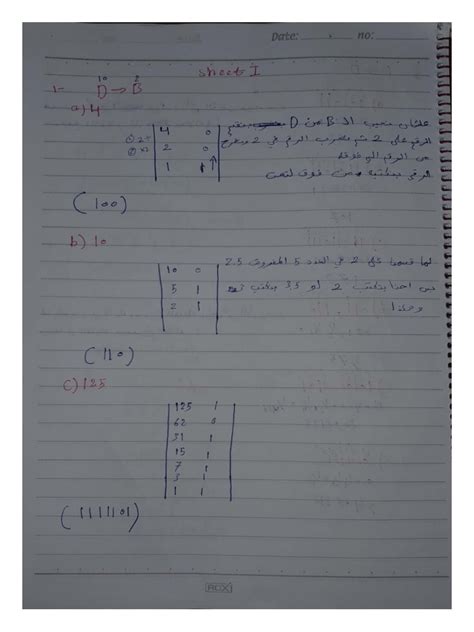 Date: no:
sheet I
10 2
1- D → B
a) 4
علشان نجيب الـ B من D
4 0
الرقم على 2 ثم نضرب الرقم في 2 ونطرح
2 0
من الرقم الي فوقه
1 1 ↑
من فوق لتحت
(100)
b) 10
لما قسمنا على 2 في العدد 5 المفروض 2.5
10 0
5 1
بس احنا بنكتب 2 لو 3.5 بنكتب 3
2 1
وهكذا
(110)
c) 125
125 1
62 0
31 1
15 1
7 1
3 1
1 1
(1111101)
ROX